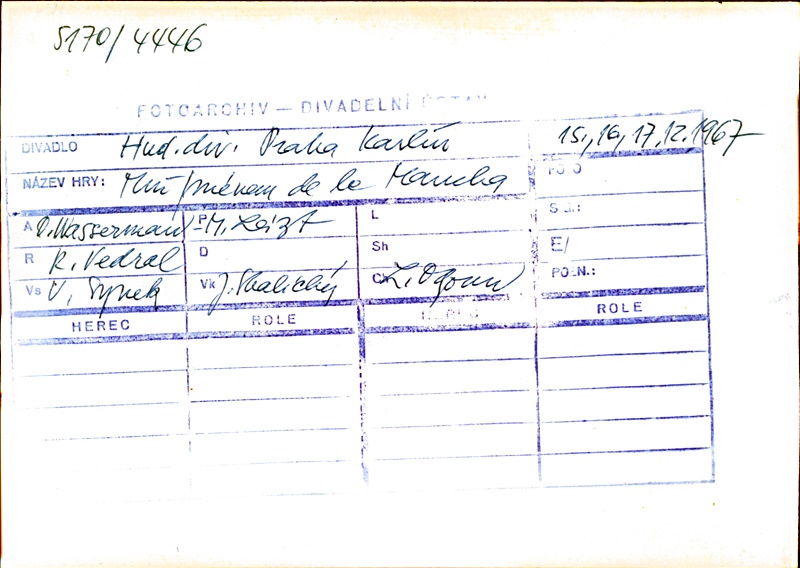 5170/4446
FOTOARCHIV — DIVADELNÍ ÚSTAV
DIVADLO Hud. div. Praha Karlín 15., 16., 17.12.1967
NÁZEV HRY: Muž jménem de la Mancha FOTO
A D. Wasserman P M. Leigh L
R K. Vedral D Sh E/
Vs V. Synek Vk J. Skalický Ch L. Ogoun POZN.:
HEREC ROLE HEREC ROLE